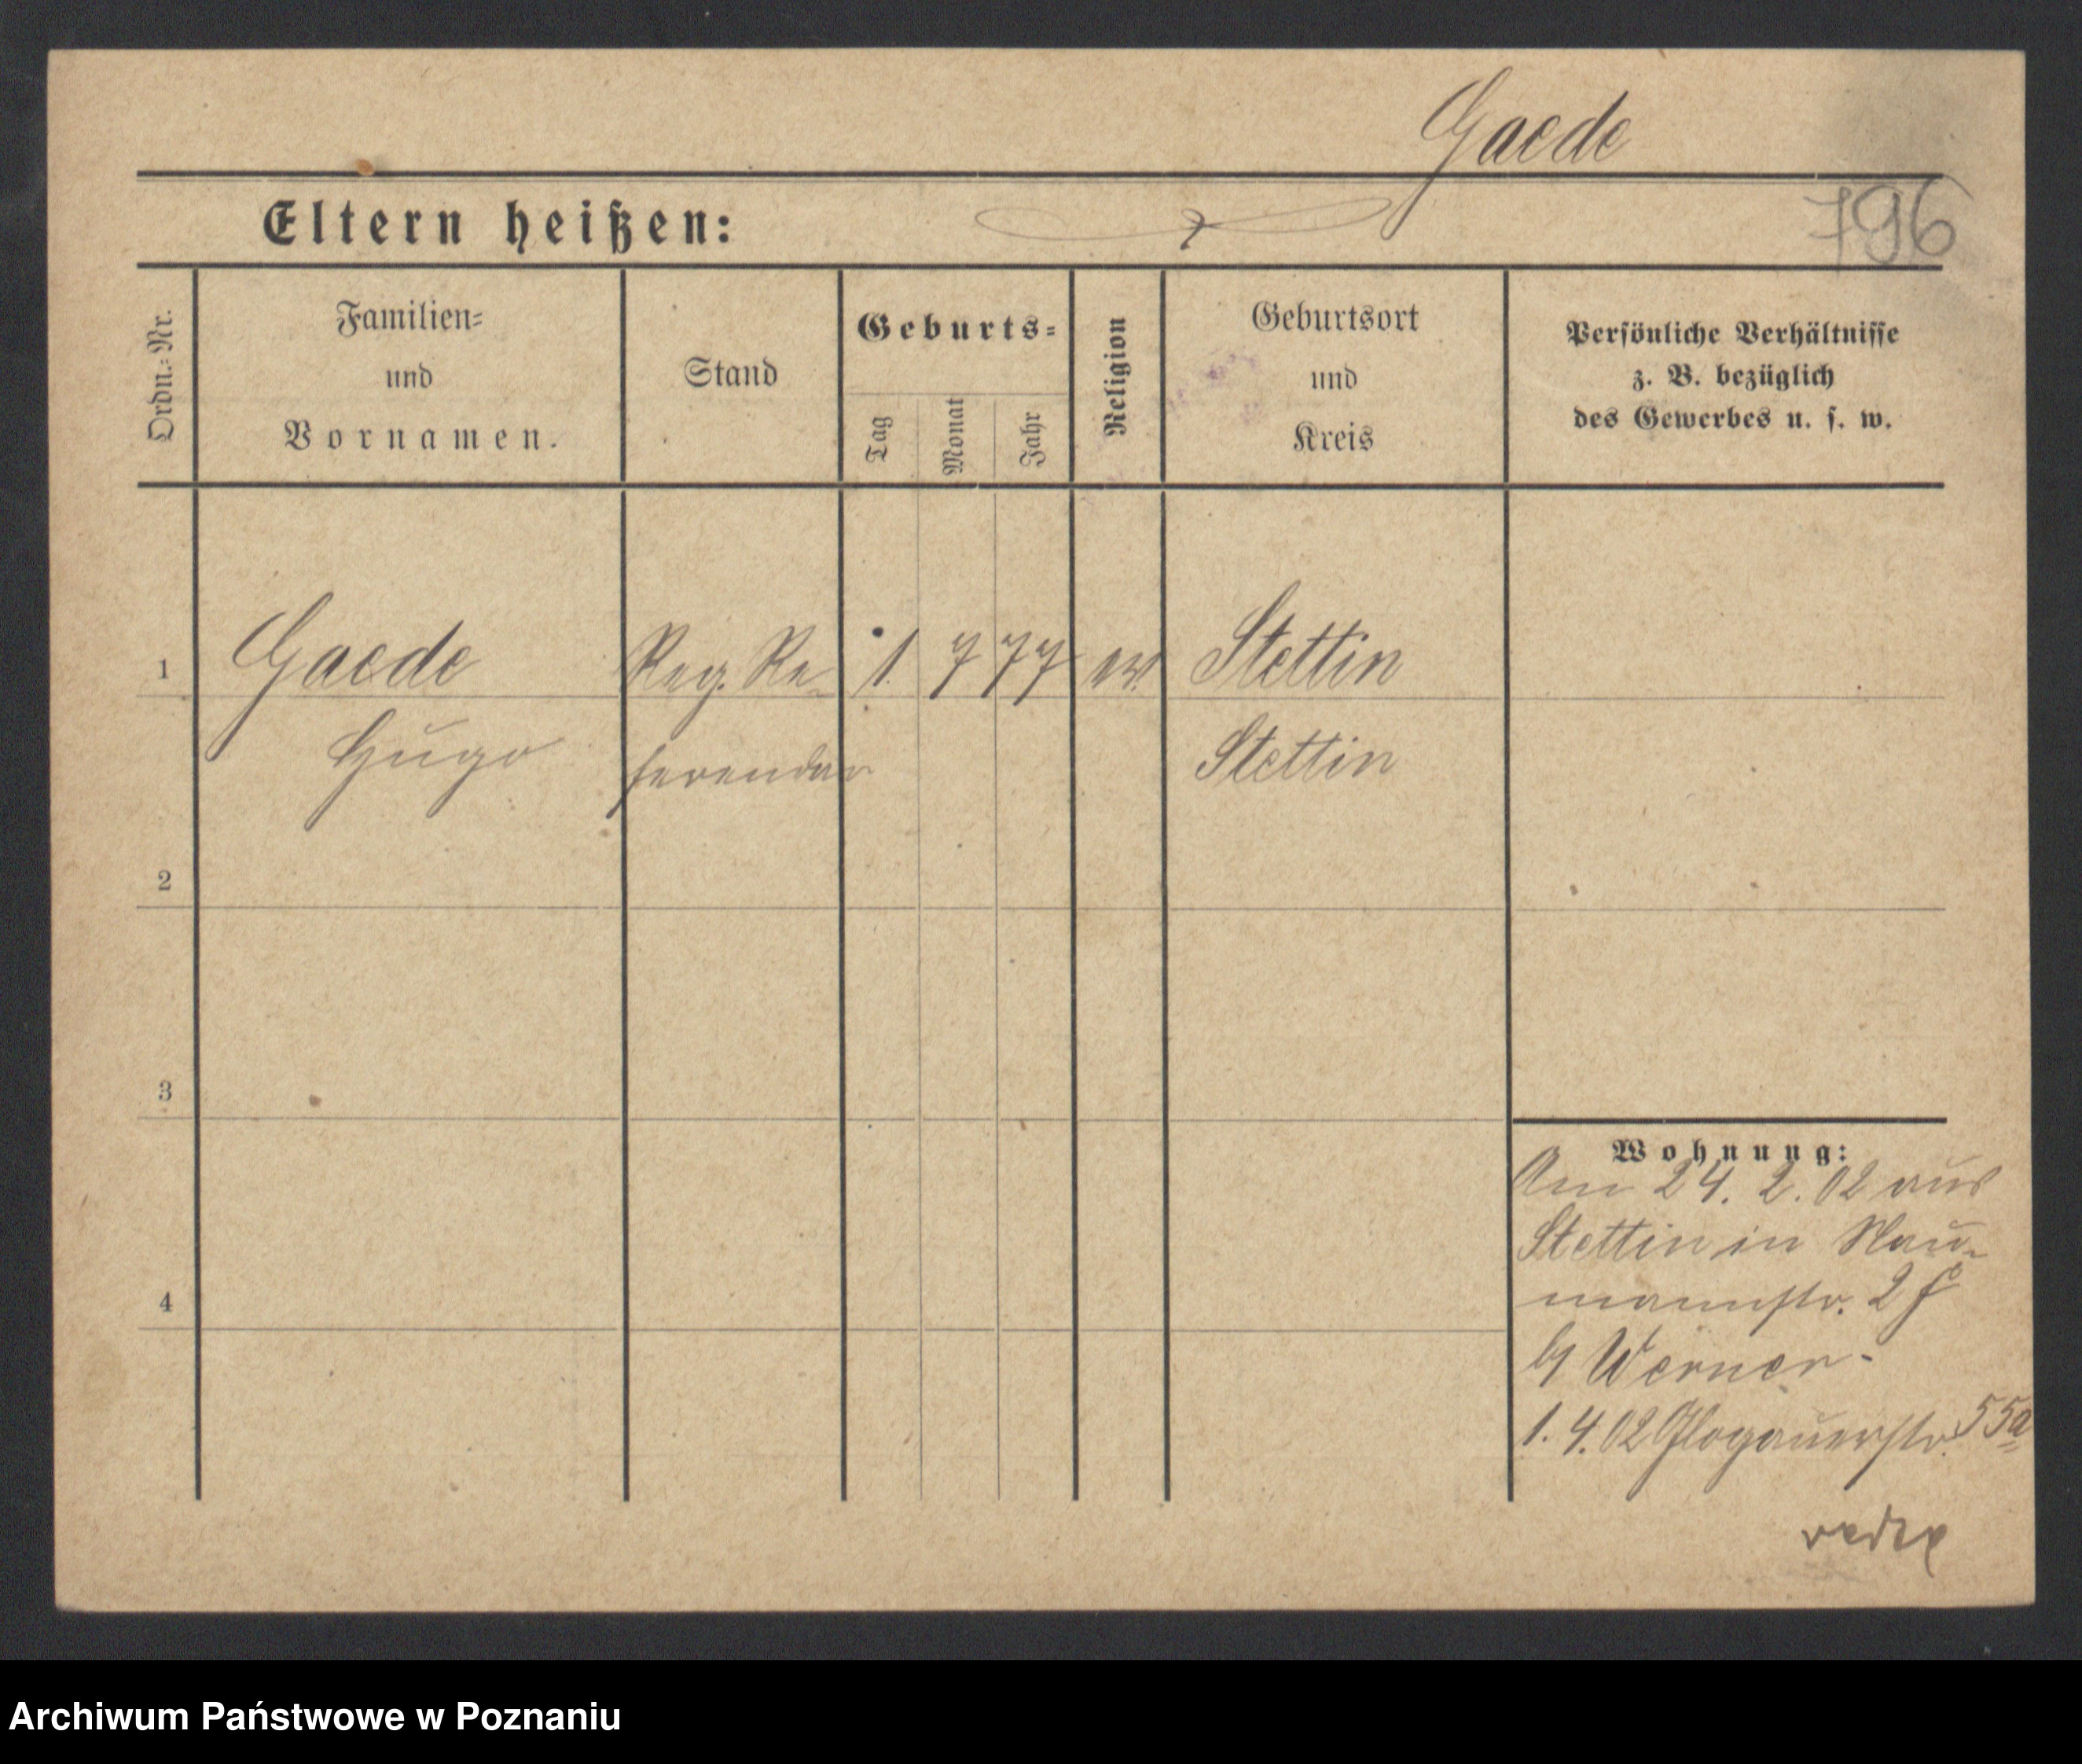 Gaede
796
Eltern heißen:
Ordn.-Nr.
Familien-
und
Vornamen.
Stand
Geburts-
Tag
Monat
Jahr
Religion
Geburtsort
und
Kreis
Persönliche Verhältnisse
z. B. bezüglich
des Gewerbes u. s. w.
1 Gaede Reg. Re- 1. 7 77 ev. Stettin
Hugo ferendar Stettin
2
3
4
Wohnung:
Am 24. 2. 02 aus
Stettin in Nau-
mannstr. 2 f
b/ Werner.
1. 4. 02 Glogauerstr. 55a
Archiwum Państwowe w Poznaniu